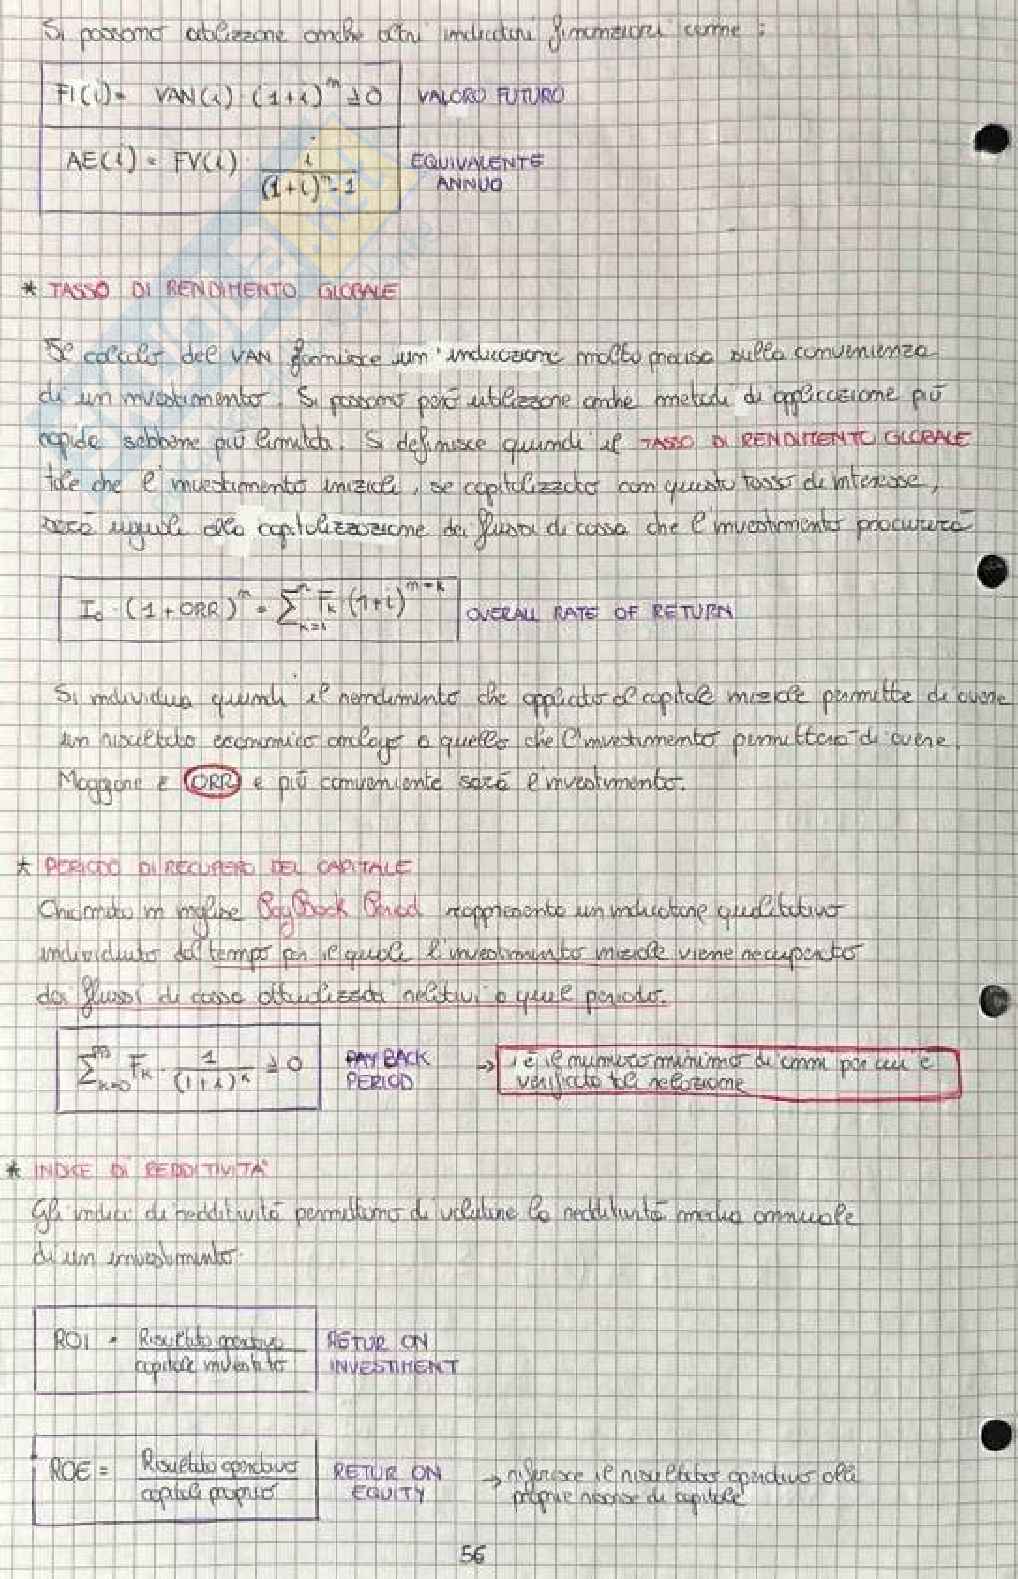 Si possono utilizzare anche altri indicatori finanziari come :
FV(i) = VAN(i) · (1+i)^n ≥ 0 VALORO FUTURO
AE(i) = FV(i) · i / ((1+i)^n - 1) EQUIVALENTE ANNUO
* TASSO DI RENDIMENTO GLOBALE
Il calcolo del VAN fornisce un'indicazione molto precisa sulla convenienza
di un investimento. Si possono però utilizzare anche metodi di applicazione più
rapida sebbene più limitata. Si definisce quindi il TASSO DI RENDIMENTO GLOBALE
tale che l'investimento iniziale, se capitalizzato con questo tasso di interesse,
sarà uguale alla capitalizzazione dei flussi di cassa che l'investimento procurerà
I₀ · (1 + ORR)^n = ∑_{k=1}^n F_k · (1+i)^{n-k} OVERALL RATE OF RETURN
Si individua quindi il rendimento che applicato al capitale iniziale permette di avere
un risultato economico analogo a quello che l'investimento permetterà di avere.
Maggiore è ORR e più conveniente sarà l'investimento.
* PERIODO DI RECUPERO DEL CAPITALE
Chiamato in inglese PayBack Period rappresenta un indicatore qualitativo
individuato dal tempo per il quale l'investimento iniziale viene recuperato
dai flussi di cassa attualizzati relativi a quel periodo.
∑_{k=0}^m F_k · 1 / (1+i)^k ≥ 0 PAY BACK PERIOD → è il numero minimo di anni per cui è
verificata tale relazione
* INDICE DI REDDITIVITA'
Gli indici di redditività permettono di valutare la redditività media annuale
di un investimento.
ROI = Risultato operativo / capitale investito RETUR ON INVESTIMENT
ROE = Risultato operativo / capitale proprio RETUR ON EQUITY → riferisce il risultato operativo alle
proprie risorse di capitale
56